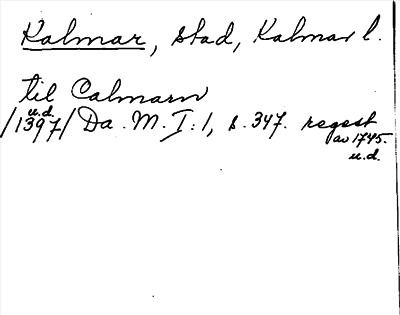 Kalmar, stad, Kalmar l.
til Calmarn
u.d.
/1397/ Da. M. I:1, s. 347. regest
av 1745.
u.d.